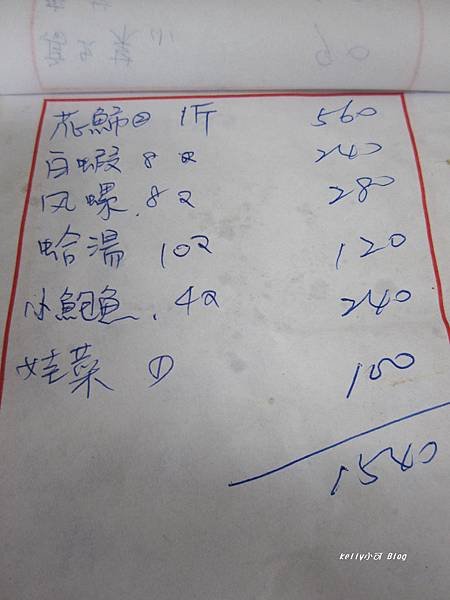 花 ② 1斤 560
白蝦 8两 240
风螺. 8两 280
蛤湯 10两 120
小鮑魚. 4两 240
娃菜 ① 100
1540
Kelly小可 Blog